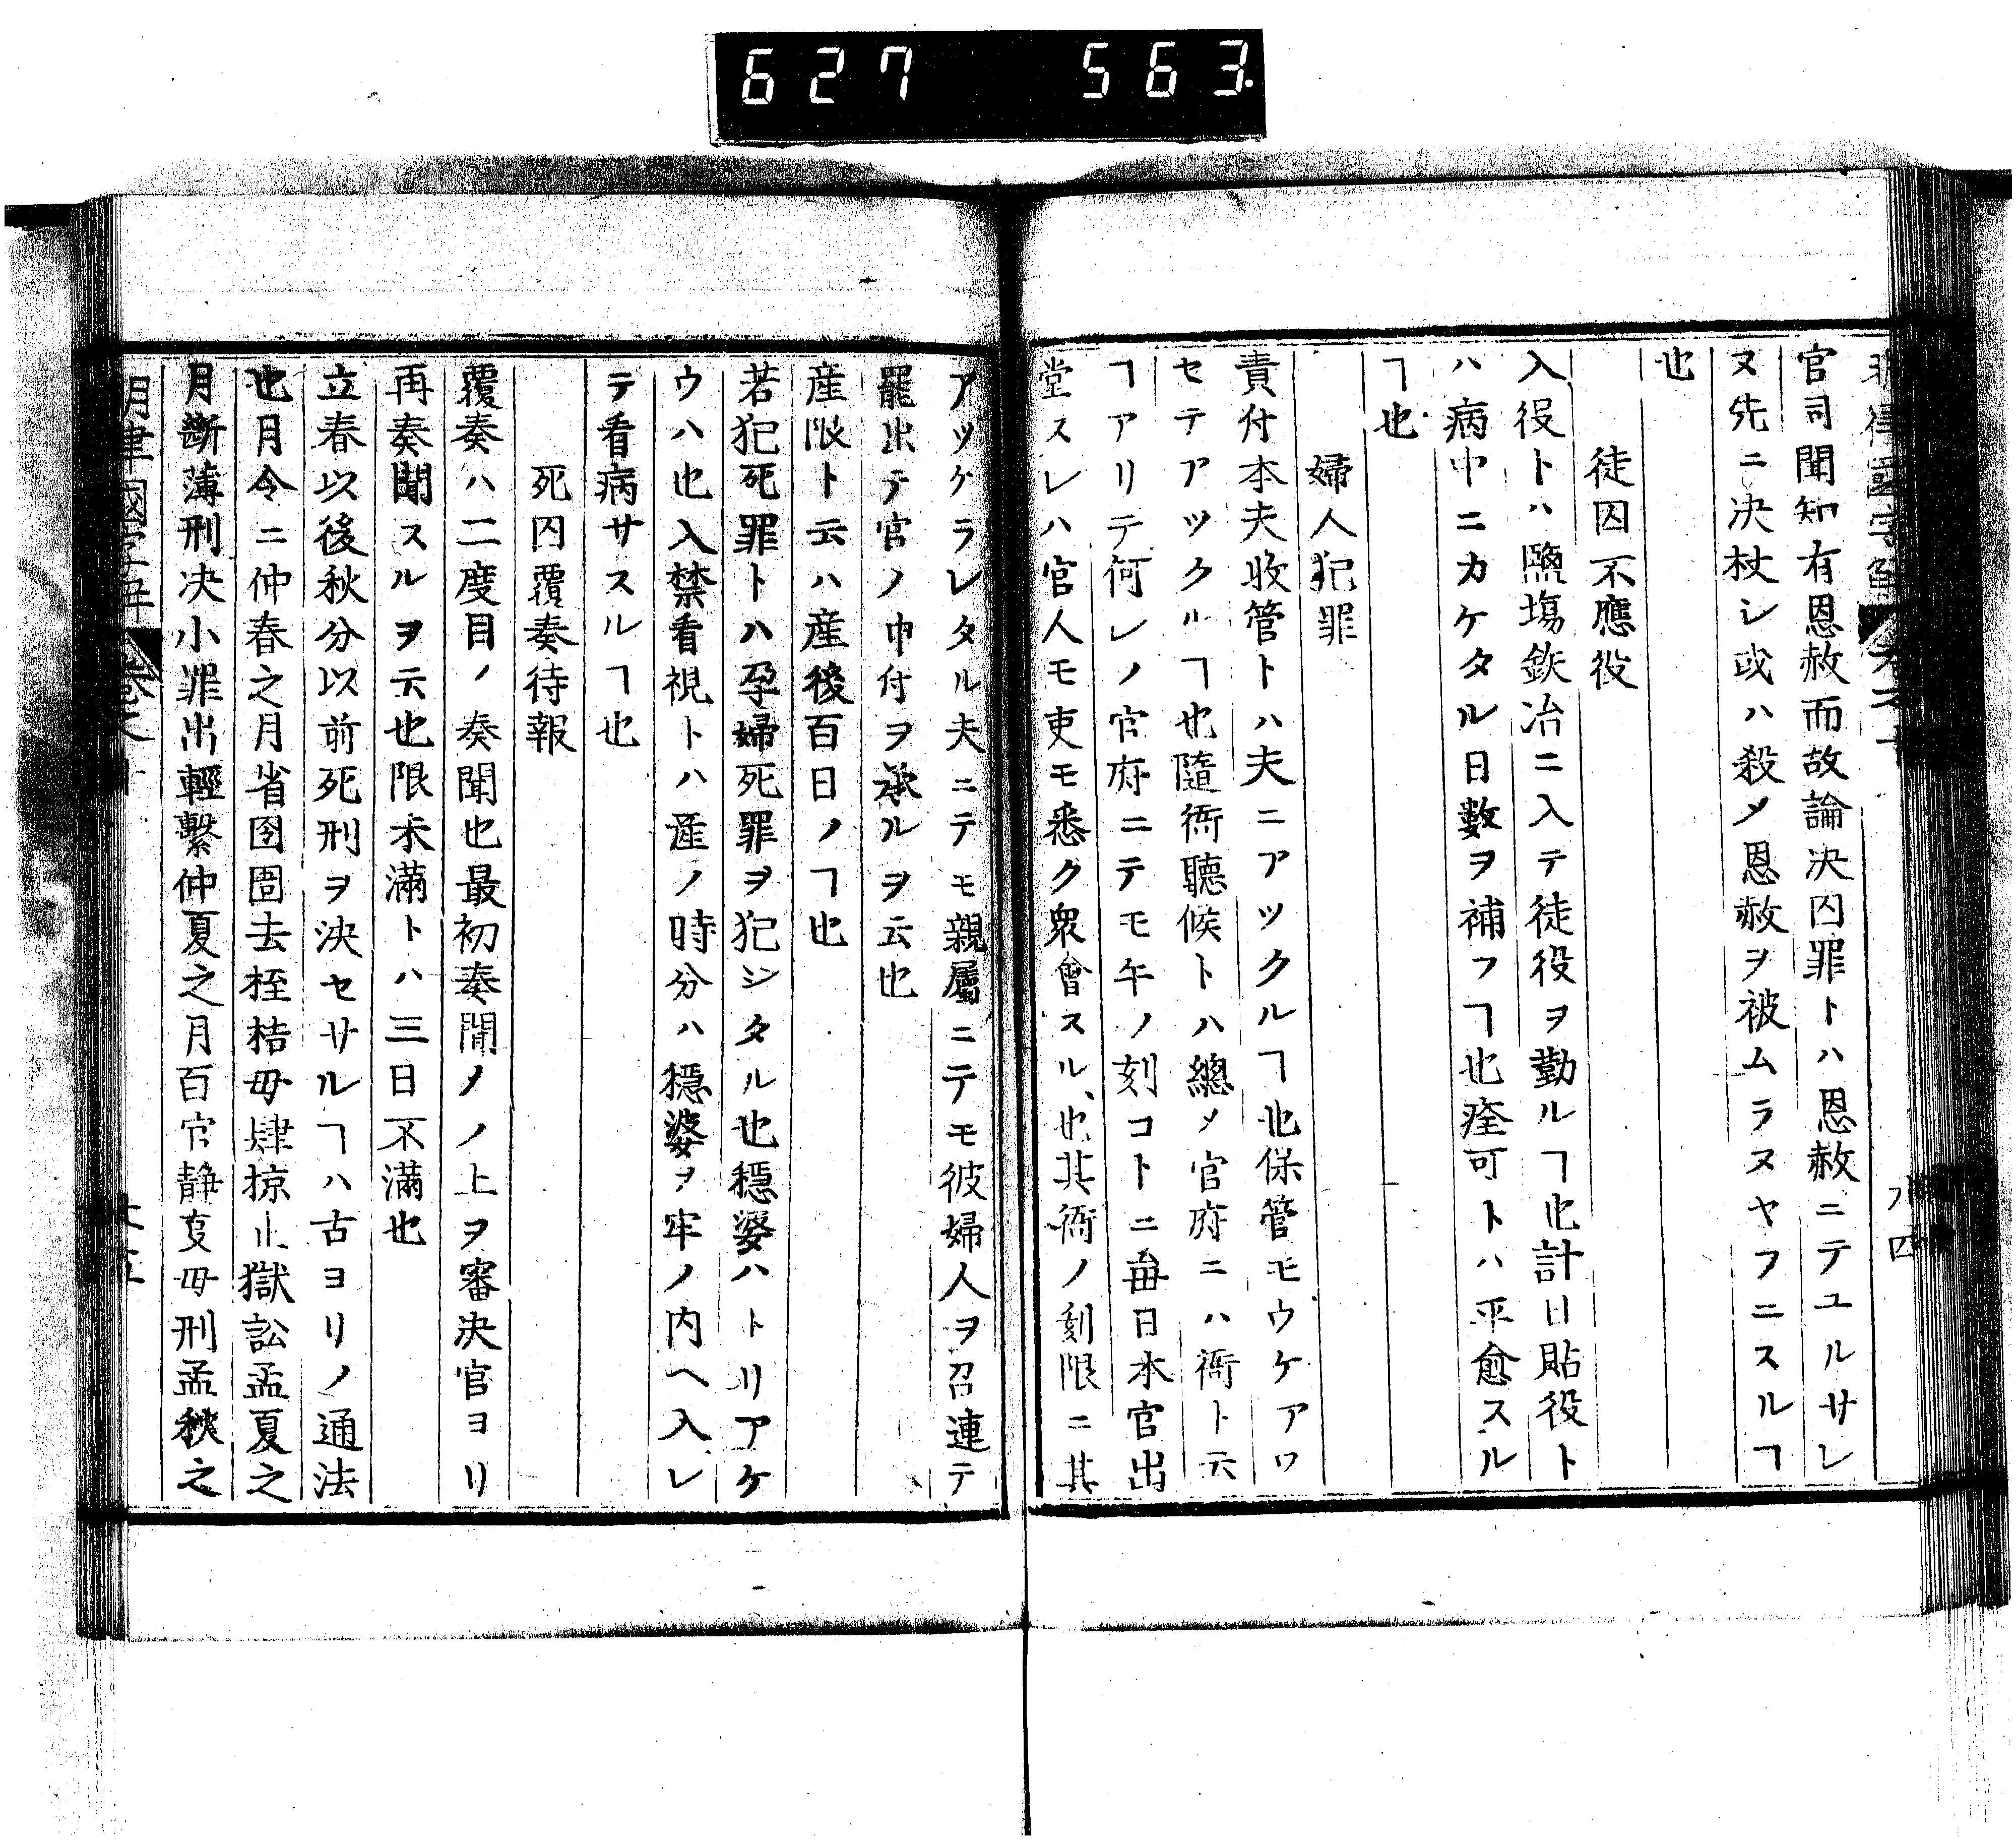 627 563
官司聞知有恩赦而故論決囚罪トハ恩赦ニテユルサレ
ヌ先ニ決杖シ或ハ殺メ恩赦ヲ被ムラヌヤフニスルヿ
也
徒囚不應役
入役トハ鹽塲鉃冶ニ入テ徒役ヲ勤ルヿ也計日貼役ト
ハ病中ニカケタル日數ヲ補フヿ也痊可トハ平愈スル
ヿ也
婦人犯罪
責付本夫收管トハ夫ニアツクルヿ也保管モウケアワ
セテアツクルヿ也隨衙聽候トハ總メ官府ニハ衙ト云
ヿアリテ何レノ官府ニテモ午ノ刻コトニ毎日本官出
堂スレハ官人モ吏モ悉ク衆會スル也其衙ノ刻限ニ其
アツケラレタル夫ニテモ親屬ニテモ彼婦人ヲ召連テ
罷出テ官ノ申付ヲ承ルヲ云也
産限ト云ハ産後百日ノヿ也
若犯死罪トハ孕婦死罪ヲ犯シタル也穩婆ハトリアケ
ウハ也入禁看視トハ産ノ時分ハ穩婆ヲ牢ノ内ヘ入レ
テ看病サスルヿ也
死囚覆奏待報
覆奏ハ二度目ノ奏聞也最初奏聞メノ上ヲ審決官ヨリ
再奏聞スルヲ云也限未滿トハ三日不滿也
立春以後秋分以前死刑ヲ決セサルヿハ古ヨリノ通法
也月令ニ仲春之月省囹圄去桎梏毋肆掠止獄訟孟夏之
月斷薄刑決小罪出輕繫仲夏之月百官靜事毋刑孟秋之
明律國字解